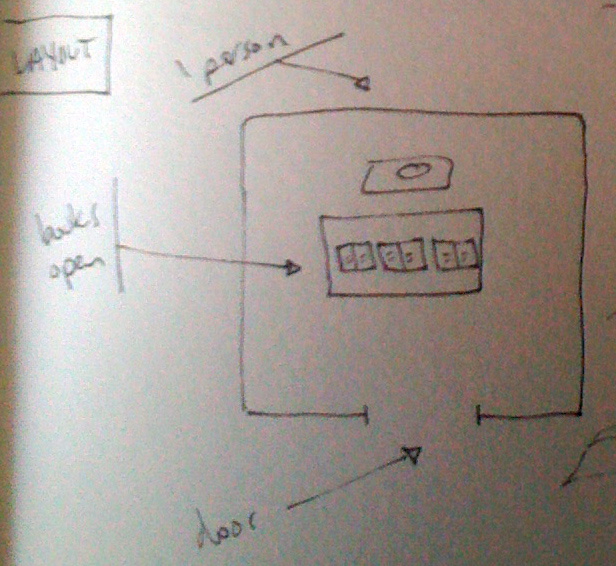 LAYOUT
1 person
books
open
door